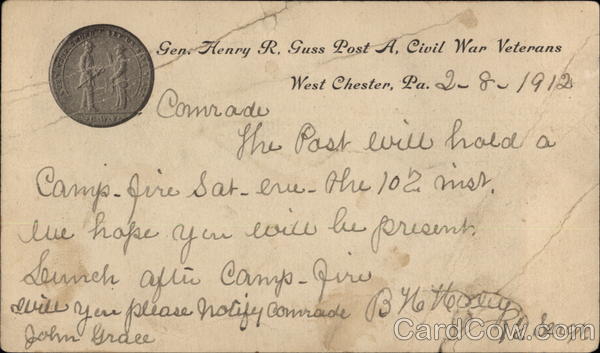 Gen. Henry R. Guss Post A, Civil War Veterans
West Chester, Pa. 2-8-1912
Comrade
The Post will hold a
Camp-fire Sat-eve-the 10th inst.
We hope you will be present.
Lunch after Camp-fire
Will you please Notify Comrade
John Grace
B H
CardCow.com